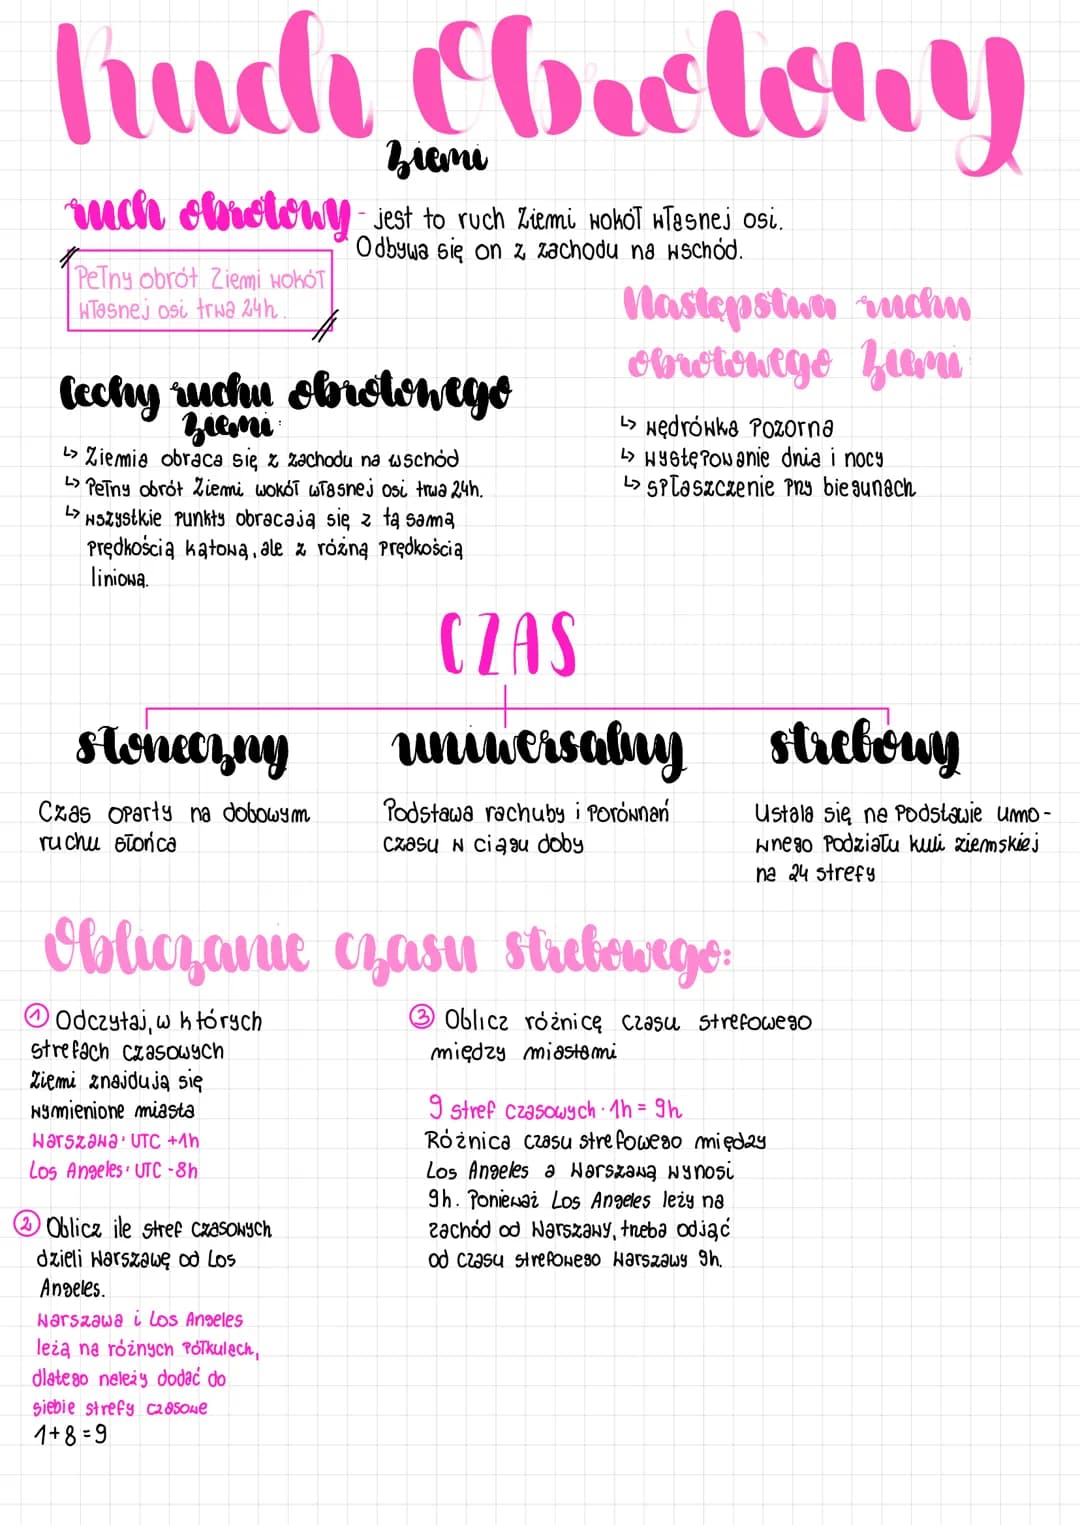 Ruch Obrotowy
Ziemi
ruch obrotowy - jest to ruch Ziemi wokół własnej osi.
Odbywa się on z zachodu na wschód.
Pełny obrót Ziemi wokół
własnej osi trwa 24h.
Następstwa ruchu
obrotowego Ziemi:
↳ wędrówka pozorna
↳ występowanie dnia i nocy
↳ spłaszczenie przy biegunach
Cechy ruchu obrotowego
Ziemi:
↳ Ziemia obraca się z zachodu na wschód
↳ Pełny obrót Ziemi wokół własnej osi trwa 24h.
↳ wszystkie punkty obracają się z tą samą
prędkością kątową, ale z różną prędkością
liniową.
CZAS
słoneczny
Czas oparty na dobowym
ruchu słońca
uniwersalny
Podstawa rachuby i porównań
czasu w ciągu doby
strefowy
Ustala się na podstawie umo-
wnego podziału kuli ziemskiej
na 24 strefy
Obliczanie czasu strefowego:
① Odczytaj, w których
strefach czasowych
Ziemi znajdują się
wymienione miasta
Warszawa: UTC +1h
Los Angeles: UTC -8h
② Oblicz ile stref czasowych
dzieli Warszawę od Los
Angeles.
Warszawa i Los Angeles
leżą na różnych półkulach,
dlatego należy dodać do
siebie strefy czasowe
1+8=9
③ Oblicz różnicę czasu strefowego
między miastami
9 stref czasowych · 1h = 9h
Różnica czasu strefowego między
Los Angeles a Warszawą wynosi
9h. Ponieważ Los Angeles leży na
zachód od Warszawy, trzeba odjąć
od czasu strefowego Warszawy 9h.